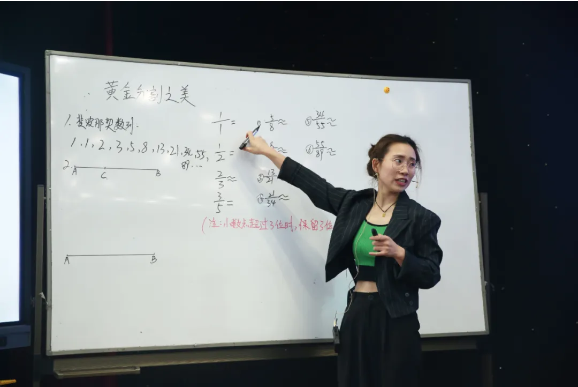 黄金分割之美
1.斐波那契数列.
1,1,2,3,5,8,13,21,34,55,
89,...
2.
A C B
A B
1/1 =
1/2 =
2/3 ≈
3/5 =
5/8 ≈
21/34 ≈
34/55 ≈
55/89 ≈
(注:小数点超过3位时,保留3位